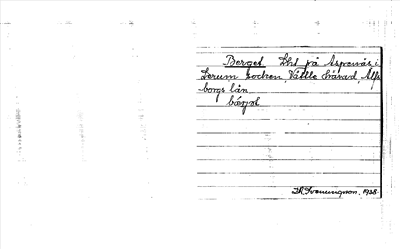 Berget Lht på Aspenäs i
Lerum socken, Vättle härad, Älfs
borgs län.
bärjet
Th. Svenungsson, 1928.